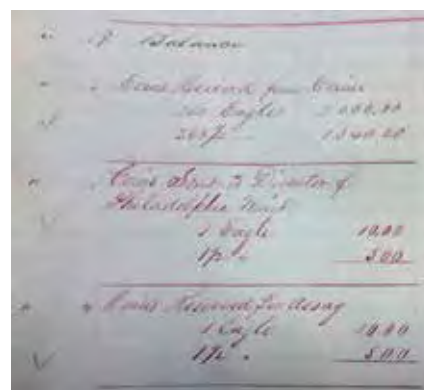 " " Balance
" " Coins Received from Coiner
Eagles
1/2 "
" " Coins Sent to Director of
Philadelphia Mint
1 Eagle 10.00
1/2 " 5.00
" " Coins Reserved for Assay
1 Eagle 10.00
1/2 " 5.00